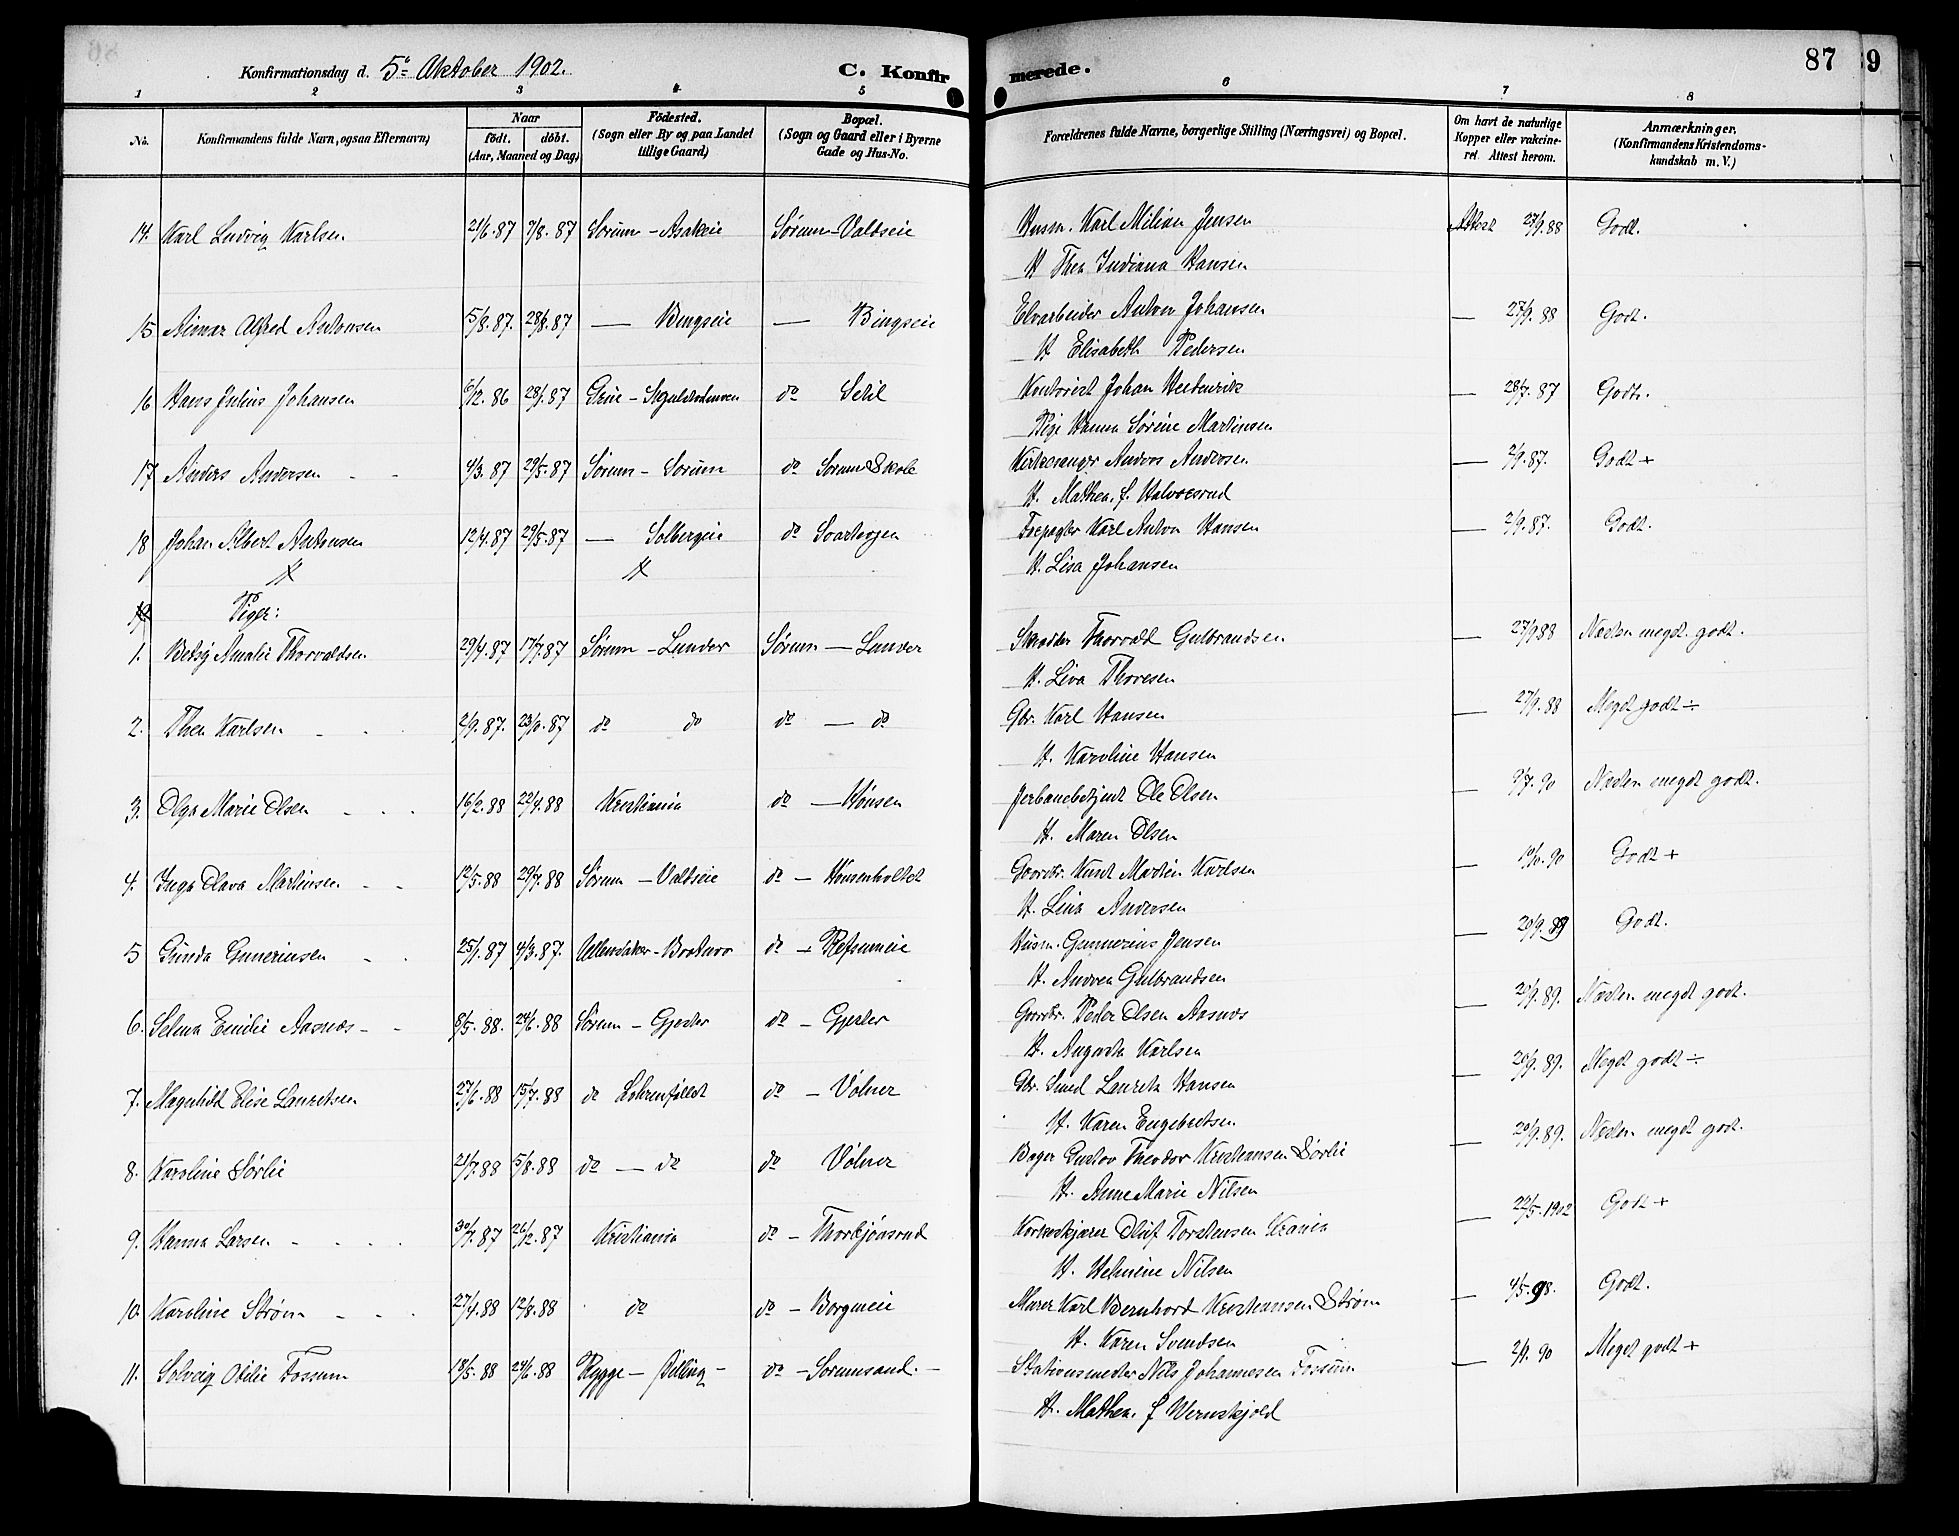 87
9
Konfirmationsdag d. 5te Oktober 1902.
C. Konfirmerede.
1 2 3 4 5 6 7 8
No.
Konfirmandens fulde Navn, ogsaa Efternavn)
Naar
födt. döbt.
(Aar, Maaned og Dag)
Födested.
(Sogn eller By og paa Landet
tillige Gaard)
Bopæl.
(Sogn og Gaard eller i Byerne
Gade og Hus-No.
Forældrenes fulde Navne, borgerlige Stilling (Næringsvei) og Bopæl.
Om havt de naturlige
Kopper eller vakcine-
ret. Attest herom.
Anmærkninger.
(Konfirmandens Kristendoms-
kundskab m. V.)
14. Karl Ludvig Karlsen 21/6.87 7/8.87 Sørum - Asakeie Sørum - Valdseie Husm. Karl Milian Jensen Attest 27/9.88 Godt.
H Thea Indiana Hansen
15 Alfred Antonsen 5/8.87. 28/8.87 — Bingseie — Bingseie Elvarbeider Anton Johansen — 27/9.88 Godt.
H Elisabeth Pedersen
16 Hans Julius Johansen 6/12.86 Grue do Kontorist Johan — 28/7.87 Godt.
Pige Hanna Sørine Martinsen
17 Anders Andersen 4/3.87 29/5.87 Sørum - Sørum do Sørum Skole Kirkesanger Anders Andersen — 2/9.87. Godt +
H. Mathea, f. Halvorsrud
18 Johan Albert Antonsen 12/4.87 29/5.87 — Solbergeie do Forpagter Karl Anton Hansen — 2/9.87. Godt.
H. Lisa Johansen
Piger:
1. Betsy Amalie Thorvaldsen 29/4.87 17/7.87 Sørum - Lunder Sørum — Lunder Skrædder Thorvald Gulbrandsen — 27/9 88 Næsten meget godt.
H. Lisa Thoresen
2. Thea Karlsen 2/9.87. 23/10.87 do do do — do Gbr. Karl Hansen — 27/9.88 Meget godt ÷
H. Karoline Hansen
3. Olga Marie Olsen 16/2.88 22/4.88 Kristiania do — Hønsen Jerbanebetjent Ole Olsen — 9/7.90 Næsten meget godt.
H. Maren Olsen
4. Inga Olava Martinsen 12/5.88 29/7.88 Sørum - Valdseie do - Hønsenholtet Gaardbr. Knut Martin Karlsen — Godt +
H. Lina Andersen
5 Gunda Gunerinsen 25/1.87 4/3.87. Ullensaker - do - Refsumeie Husm. Gunnerius Jensen — 20/9.89 Godt.
H. Andrea Gulbrandsen
6. Selma Emilie Aasnæs 8/5.88. 24/6.88 Sørum - Gjester do - Gjester Gaardbr. Peder Olsen Aasnæs — 20/9.89. Næsten meget godt.
H. Augusta Karlsen
7. Magnhild Elise Lauretsen 27/6.88 15/7.88 do do - Vølner Gbr. Smed Laurets Hansen — 20/9.89. Meget godt ÷
H. Karen Engebretsen
8. Karoline Sørlie 21/7.88 5/8.88 do — do do Vølner Bager Gustav Theodor Kristiansen Sørlie — 20/9.89. Næsten meget godt.
H. Anne Marie Nilsen
9. Hanna Larsen 30/7.87 26/12.87 Kristiania do - Thorbjønsrud Olaf Torstensen Krania — 22/5.1902 Godt +
H. Helmine Nilsen
10. Karoline Strøm 27/4.88 12/8.88 do do - Borgueie Murer Karl Bernhard Kristiansen Strøm — 4/5.98. Godt.
H. Karen Svendsen
11. Solveig Otilie Fossum 18/5.88 24/6.88 Rygge — Dilling do - Sørumsand. Stationsmester Nils Johannesen Fossum — 2/9.90 Meget godt +
H. Mathea, f Wernskjold